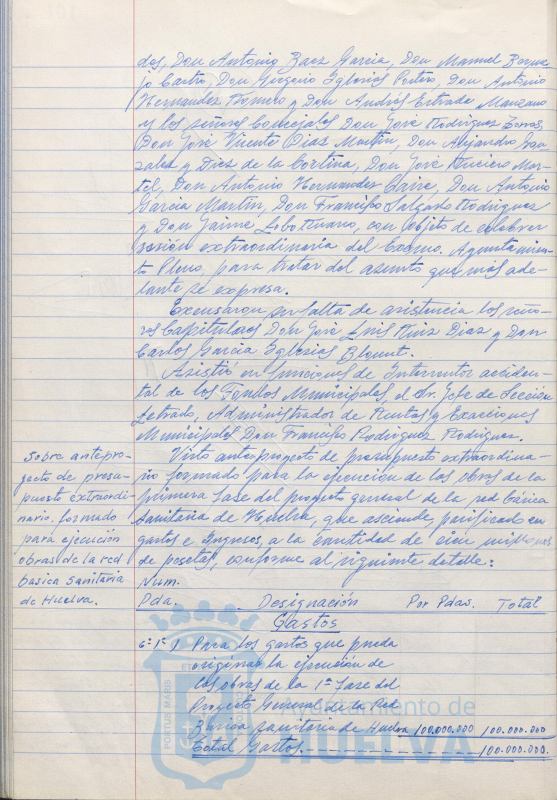 des, Don Antonio Baez Garcia, Don Manuel Borre
jo Castro, Don Gregorio Iglesias Postero, Don Antonio
Hernandez Romero y Don Andrés Estrada Manzano
y los señores Concejales Don José Rodriguez Torres,
Don José Vicente Diaz Martin, Don Alejandro Gon
zalez y Diez de la Cortina, Don José Mar-
tel, Don Antonio Hernandez Caire, Don Antonio
Garcia Martin, Don Francisco Salgado Rodriguez
y Don Jaime Lobo, con objeto de celebrar
sesión extraordinaria del Excmo. Ayuntamien-
to Pleno, para tratar del asunto que más ade-
lante se expresa.
Excusaron su falta de asistencia los seño-
res Capitulares Don José Luis Ruiz Diaz y Don
Carlos Garcia Iglesias Blount.
Asistió en funciones de Interventor acciden-
tal de los Fondos Municipales, el Sr. Jefe de Sección
Letrado, Administrador de Rentas y Exacciones
Municipales Don Francisco Rodriguez Rodriguez.
Sobre antepro-
yecto de presu-
puesto extraordi-
nario, formado
para ejecución
obras de la red
basica Sanitaria
de Huelva.
Visto anteproyecto de presupuesto extraordina-
rio formado para la ejecución de las obras de la
primera fase del proyecto general de la red básica
sanitaria de Huelva, que asciende, parificado en
gastos e ingresos, a la cantidad de cien millones
de pesetas, conforme al siguiente detalle:
Num.
Pda. Designación Por Pdas. Total
Gastos
6º 1º 1 Para los gastos que pueda
originar la ejecución de
las obras de la 1ª fase del
Proyecto General de la Red
Básica Sanitaria de Huelva 100.000.000 100.000.000
Total Gastos 100.000.000.
PORTUS MARIS
Ayuntamiento de
HUELVA